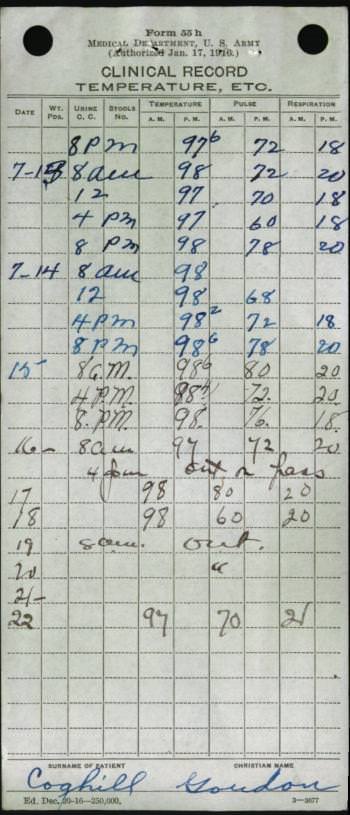 Form 55 h
MEDICAL DEPARTMENT, U. S. ARMY
(Authorized Jan. 17, 1916.)
CLINICAL RECORD
TEMPERATURE, ETC.
DATE WT. Pds. URINE C. C. STOOLS No. TEMPERATURE A. M. P. M. PULSE A. M. P. M. RESPIRATION A. M. P. M.
8 PM 97⁶ 72 18
7-13 8 am 98 72 20
12 97 70 18
4 PM 97 60 18
8 PM 98 78 20
7-14 8 am 98
12 98 68
4 PM 98² 72 18
8 PM 98⁶ 78 20
15- 8 a.M. 98⁶ 80 20
4 P.M. 72. 20
8. P.M. 98. 76. 18
16- 8 am 97 72 20
4 pm out on pass
17 98 80 20
18 98 60 20
19 8 am. out.
20 "
21-
22 97 70 21
SURNAME OF PATIENT CHRISTIAN NAME
Coghill Gordon
Ed. Dec. 20-16—250,000. 3—3077